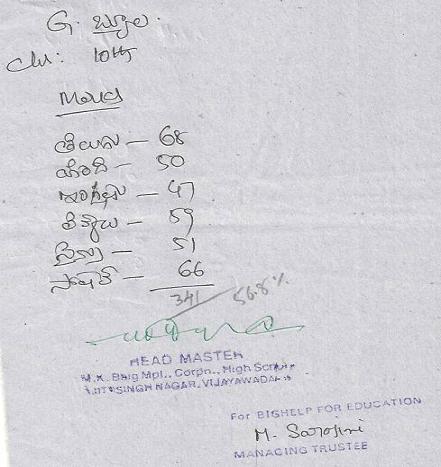 G. జ్యోతి.
Class: 10th
Marks
తెలుగు — 68
హిందీ — 50
ఇంగ్లీషు — 47
లెక్కలు — 59
సైన్సు — 51
సోషల్ — 66
341 56.8%
HEAD MASTER
M.K. Baig Mpl., Corpn., High School
AJIT SINGH NAGAR, VIJAYAWADA-15
For BIGHELP FOR EDUCATION
M. Sarojini
MANAGING TRUSTEE